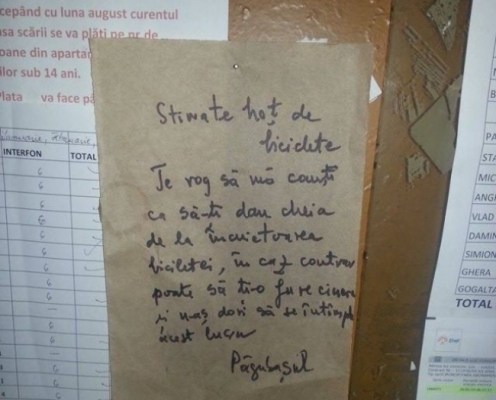 cepând cu luna august curentul
sa scării se va plăti pe nr de
oane din aparta
ilor sub 14 ani.
Plata va face pâ
INTERFON TOTAL
6
6
6
6
6
6
6
6
Stimate hoț de
biciclete
Te rog să mă cauți
ca să-ți dau cheia
de la încuietoarea
bicicletei, în caz contrar
poate să ți-o fure cineva
și n-aș dori să se întâmple
acest lucru
Păgubașul
PA
STA
MIC
ANGH
VLAD
DAMIN
SIMION
GHERA
GOGALTA
TOTAL